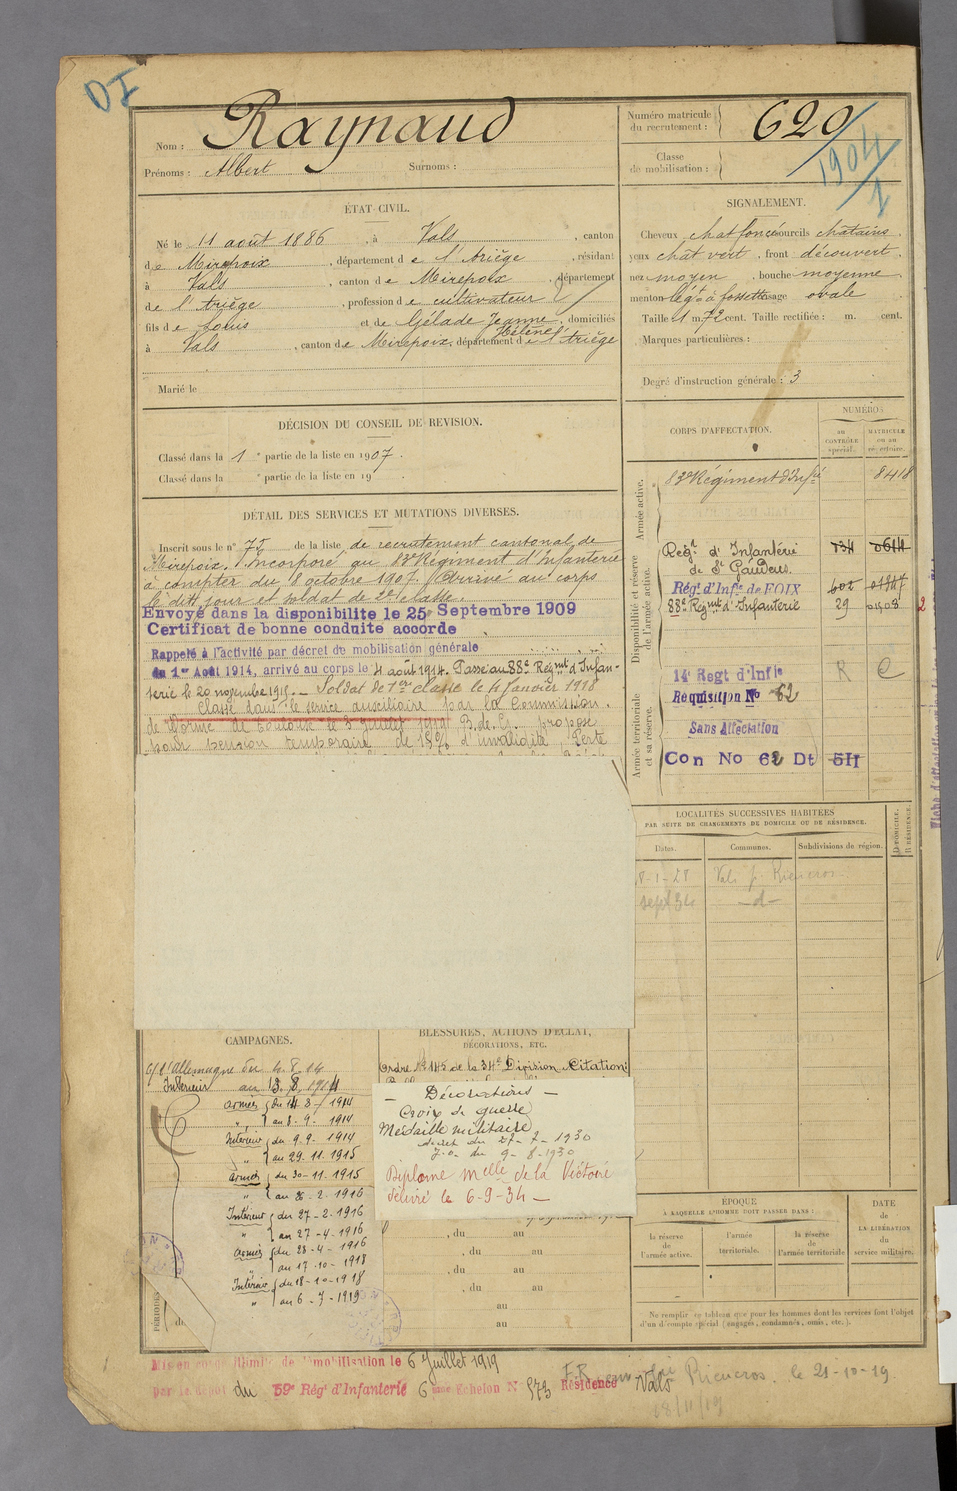 DI
Nom : Raynaud
Prénoms : Albert Surnoms :
Numéro matricule du recrutement : 620
Classe de mobilisation :
1904/1
ÉTAT CIVIL.
Né le 11 août 1886, à Vals, canton
de Mirepoix, département de l'Ariège, résidant
à Vals, canton de Mirepoix, département
de l'Ariège, profession de cultivateur
fils de Louis et de Gélade Jeanne Hélène, domiciliés
à Vals, canton de Mirepoix, département de l'Ariège
Marié le
SIGNALEMENT.
Cheveux chat foncé sourcils châtains,
yeux chât vert, front découvert,
nez moyen, bouche moyenne,
menton légt à fossette visage ovale
Taille 1 m. 72 cent. Taille rectifiée : m. cent.
Marques particulières :
Degré d'instruction générale : 3
DÉCISION DU CONSEIL DE REVISION.
Classé dans la 1 e partie de la liste en 1907.
Classé dans la e partie de la liste en 19 .
DÉTAIL DES SERVICES ET MUTATIONS DIVERSES.
Inscrit sous le n° 75 de la liste de recrutement cantonal de
Mirepoix. Incorporé au 83e Régiment d'Infanterie
à compter du 8 octobre 1907. Arrivé au corps
le dit jour et soldat de 2e classe.
Envoyé dans la disponibilité le 25 Septembre 1909
Certificat de bonne conduite accordé
Rappelé à l'activité par décret de mobilisation générale
du 1er Août 1914, arrivé au corps le 4 août 1914. Passé au 88e Régmt d'Infan-
terie le 20 novembre 1915. Soldat de 1ère classe le 4 janvier 1918
Classé dans le service auxiliaire par la Commission
de réforme de Toulouse le 3 juillet 1919 B.de.G. proposé
pour pension temporaire de 15% d'invalidité, Perte
CORPS D'AFFECTATION.
NUMÉROS
au CONTRÔLE spécial.
MATRICULE ou au répertoire.
Armée active.
83e Régiment d'Infie 8418
Disponibilité et réserve de l'armée active.
Régt d'Infanterie
de St Gaudens.
Régt d'Infie de FOIX
88e Régmt d'Infanterie 29 01508
Armée territoriale et sa réserve.
14e Regt d'Infie R C
Requisition No 62
Sans Affectation
Con No 62 Dt 5II
LOCALITÉS SUCCESSIVES HABITÉES
PAR SUITE DE CHANGEMENTS DE DOMICILE OU DE RÉSIDENCE.
Dates. Communes. Subdivisions de région. D. DOMICILE. R. RÉSIDENCE.
8-1-28 Vals p. Rieucros
Sept 34 -d-
CAMPAGNES.
C/ l'Allemagne du 4.8.14
Intérieur au 13.8.1914
Armées du 14-8-1914
" au 8-9-1914
Intérieur du 9.9.1914
" au 29.11.1915
Armées du 30-11.1915
" au 26-2.1916
Intérieur du 27-2-1916
" au 27-4-1916
Armées du 28-4-1916
" au 17-10-1918
Intérieur du 18-10-1918
" au 6-7-1919
PÉRIODES
BLESSURES, ACTIONS D'ÉCLAT,
DÉCORATIONS, ETC.
Ordre N°145 de la 34e Division. Citation:
- Décorations -
Croix de guerre
Médaille militaire
décret du 27-7-1930
J.O. du 9-8-1930
Diplôme Melle de la Victoire
délivré le 6-9-34 -
, du au
, du au
, du au
, du au
au
au
ÉPOQUE
À LAQUELLE L'HOMME DOIT PASSER DANS :
la réserve de l'armée active.
l'armée territoriale.
la réserve de l'armée territoriale
DATE de LA LIBÉRATION du service militaire.
Ne remplir ce tableau que pour les hommes dont les services font l'objet
d'un décompte spécial (engagés, condamnés, omis, etc.).
Mis en congé illimité de démobilisation le 6 Juillet 1919
par le dépôt du 59e Régt d'Infanterie 6 ème Echelon N° 573 Résidence Vals
Rieucros. le 21-10-19.
18/11/19